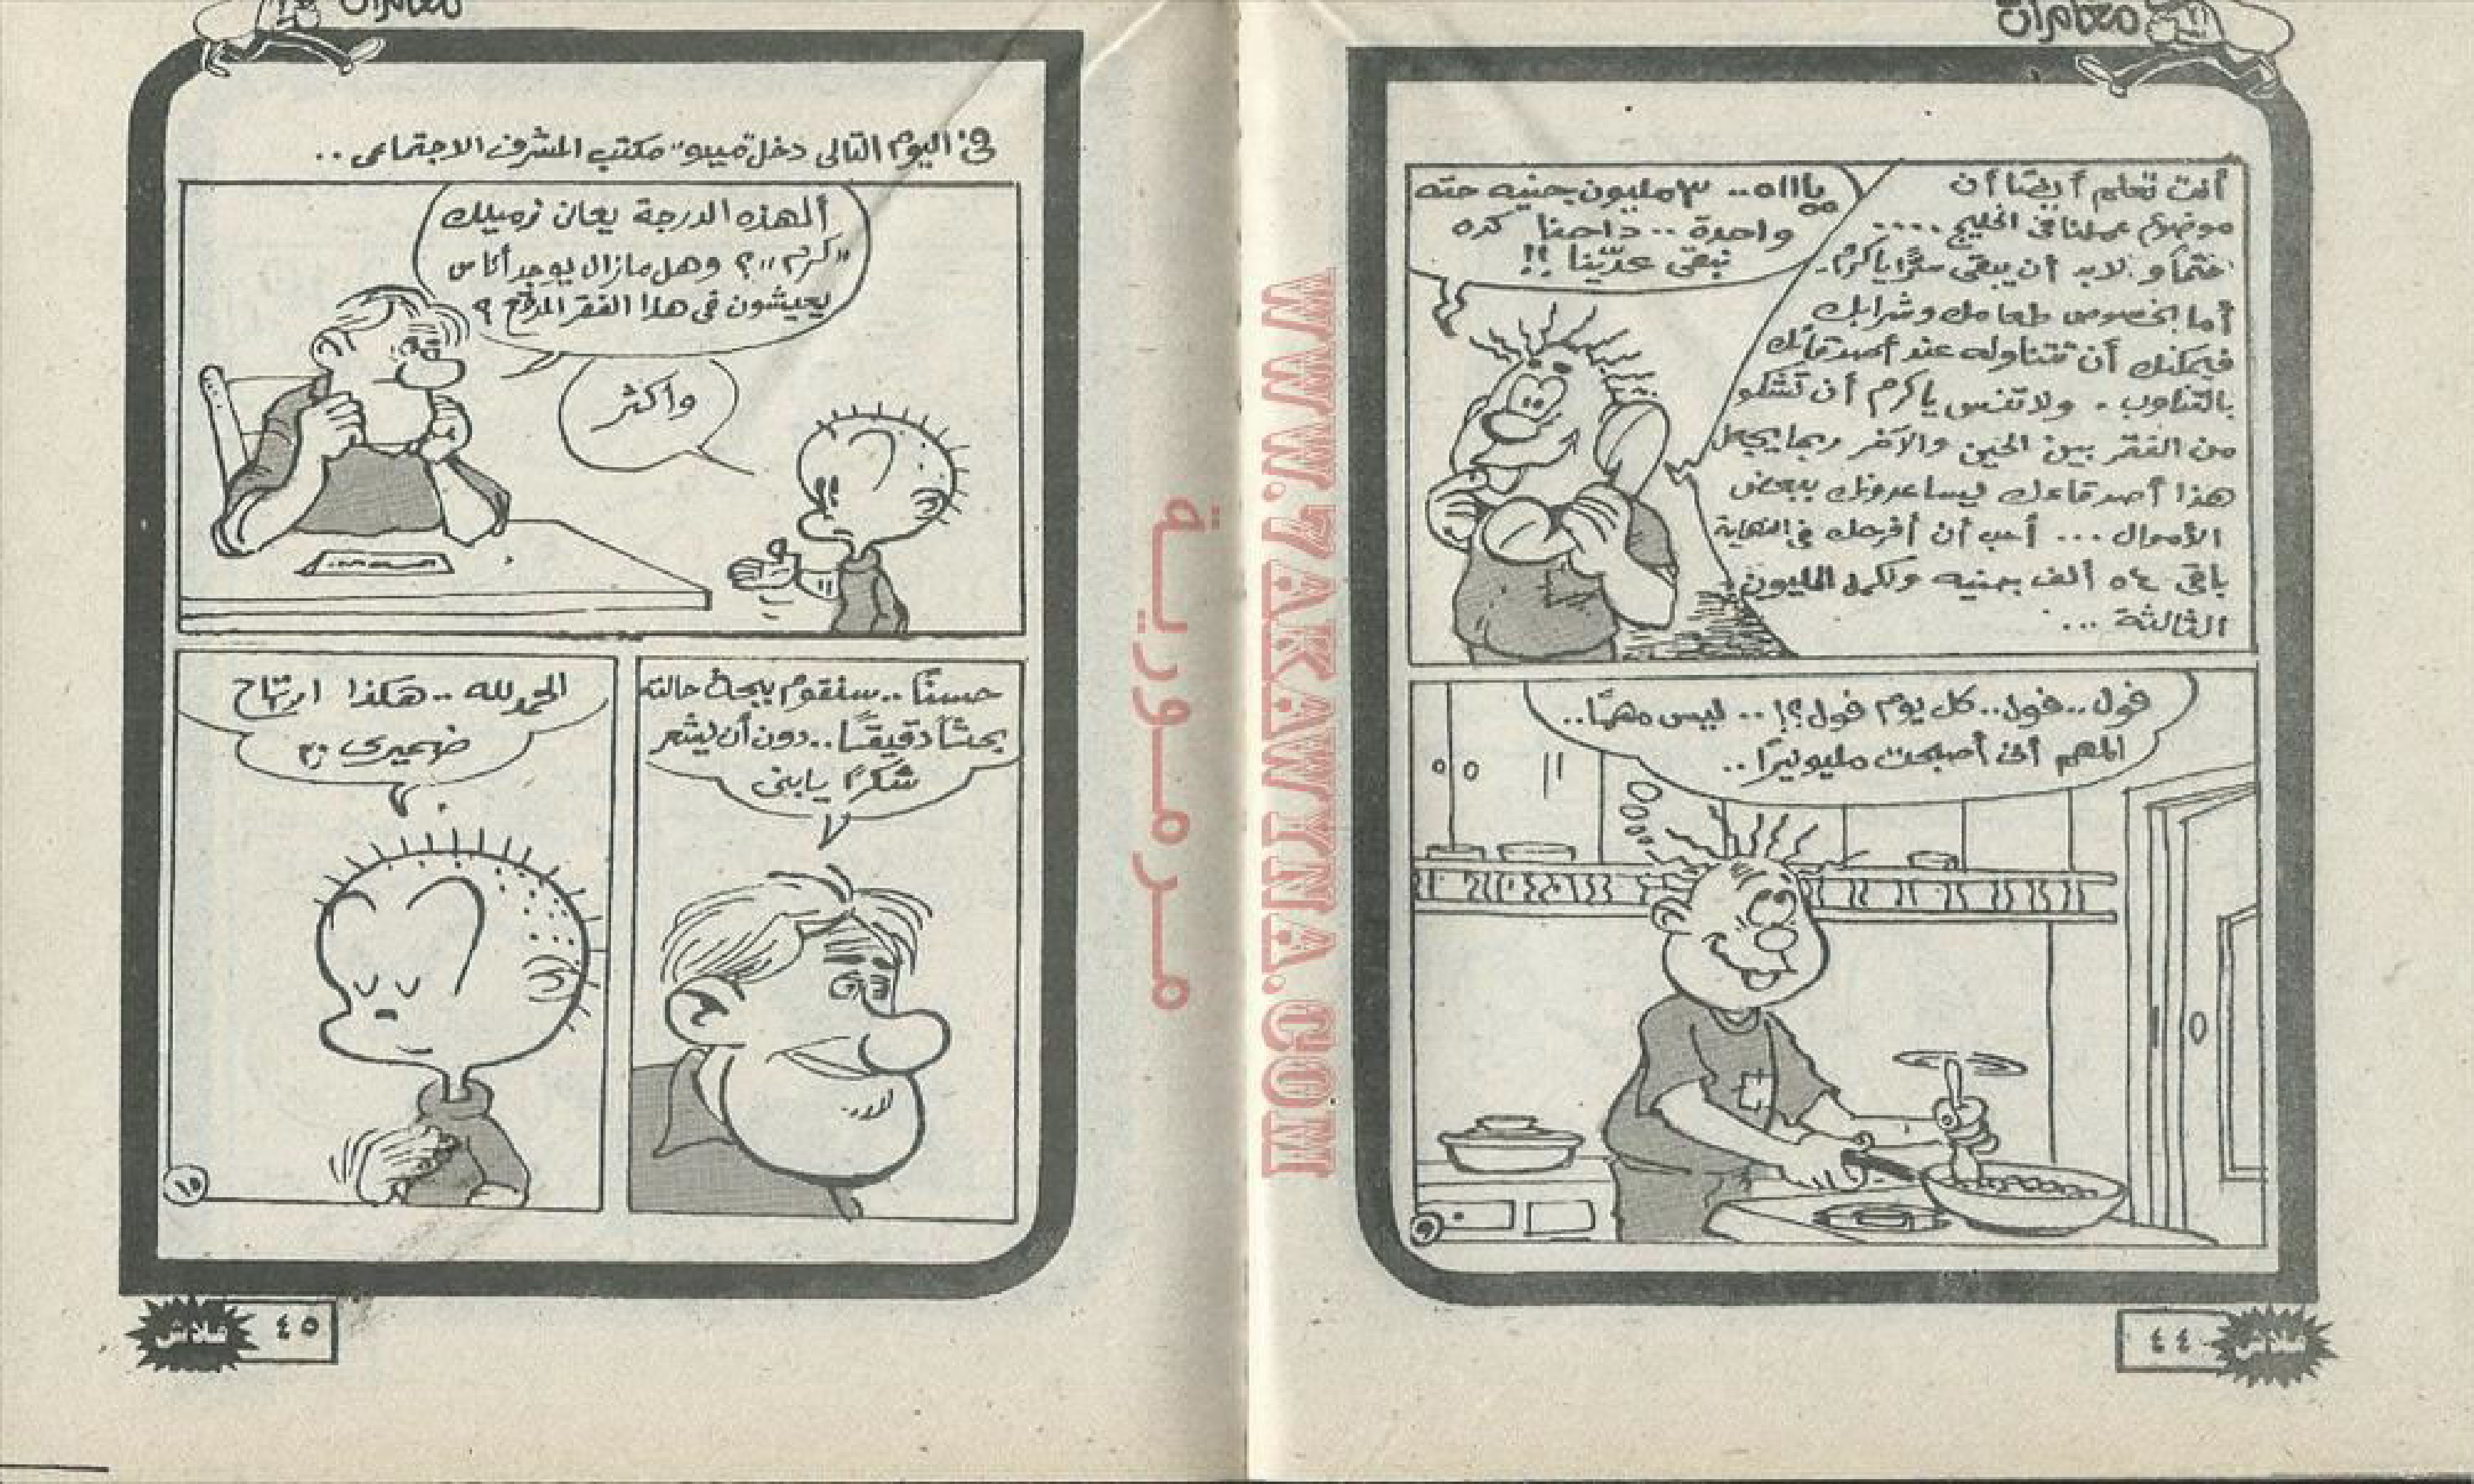 مغامرات
أنت تعلم أيضًا أن
موضوع عملنا فى الخليج ....
حتمًا و لابد أن يبقى سرًّا ياكرم.
أما بخصوص طعامك وشرابك
فيمكنك أن تتناوله عند أصدقائك
بالتناوب . ولا تنس ياكرم أن تشكو
من الفقر بين الحين والآخر ربما يجعل
هذا أصدقاءك ليساعدونك ببعض
الأموال ... أحب أن أفرحك فى النهاية
باقى ٥٤ ألف جنيه ونكمل المليون
الثالثة ...
ياااه.. ٣ مليون جنيه حته
واحدة .. داحنا كده
نبقى عدّينا !!
فول.. فول.. كل يوم فول؟! .. ليس مهمًا..
المهم أنى أصبحت مليونيرًا..
٩
٤٤
فلاش
مغامرات
فى اليوم التالى دخل "ميبو" مكتب المشرف الاجتماعى ..
ألهذه الدرجة يعانى زميلك
"كرم"؟ وهل مازال يوجد أناس
يعيشون فى هذا الفقر المدقع ؟
وأكثر
حسنًا.. سنقوم ببحث حالته
بحثًا دقيقًا.. دون أن يشعر
شكرًا يابنى
الحمد لله .. هكذا ارتاح
ضميرى
١٠
٤٥
فلاش
مرمورية
WWW.7AKAWINA.COM